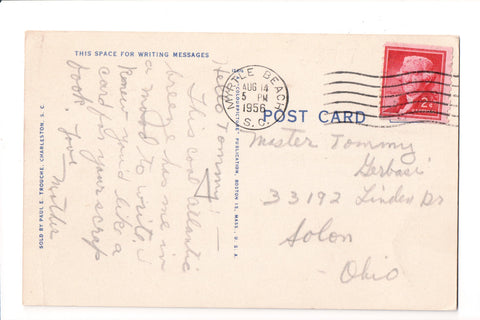 THIS SPACE FOR WRITING MESSAGES
Hello Tommy! —
This cool Atlantic
breeze has me in
a mood to write, I
knew you'd like a
card for your scrap
book. Love — Mother
SOLD BY PAUL E. TROUCHE, CHARLESTON, S. C.
PUBLICATION, BOSTON 15, MASS., U. S. A.
MYRTLE BEACH
AUG 14
5 PM
1956
S.C.
2¢
POST CARD
Master Tommy
Gerbasi
33192 Linden Dr
Solon
Ohio